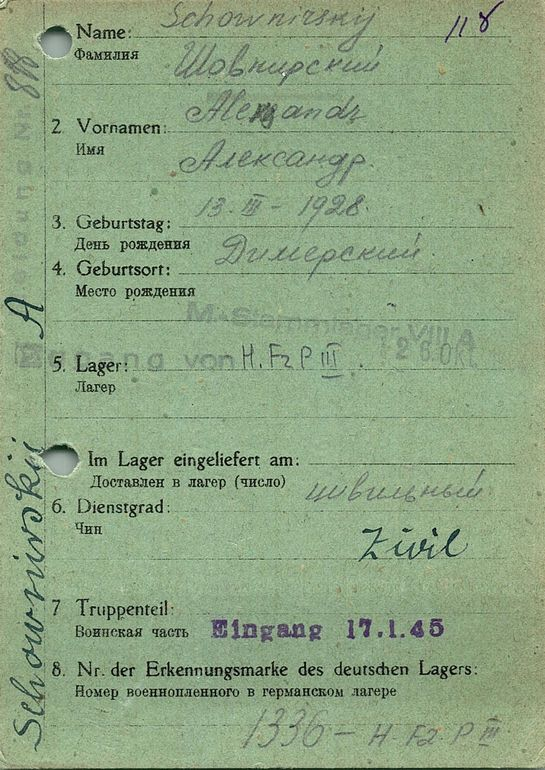 Name: Schownirsky 118
Фамилия Шовнирский
2 Vornamen: Alexandr
Имя Александр.
3. Geburtstag: 13. III - 1928.
День рождения
4. Geburtsort: Димерский
Место рождения
M.-Stammlager VIII A
Eingang von 26.Okt.
5. Lager: H. F2 P III.
Лагер
Im Lager eingeliefert am:
Доставлен в лагер (число)
6. Dienstgrad: цивильный
Чин Zivil
7 Truppenteil:
Воинская часть Eingang 17.1.45
8. Nr. der Erkennungsmarke des deutschen Lagers:
Номер военнопленного в германском лагере
1336 - H. F2. P III
Schownirskii A